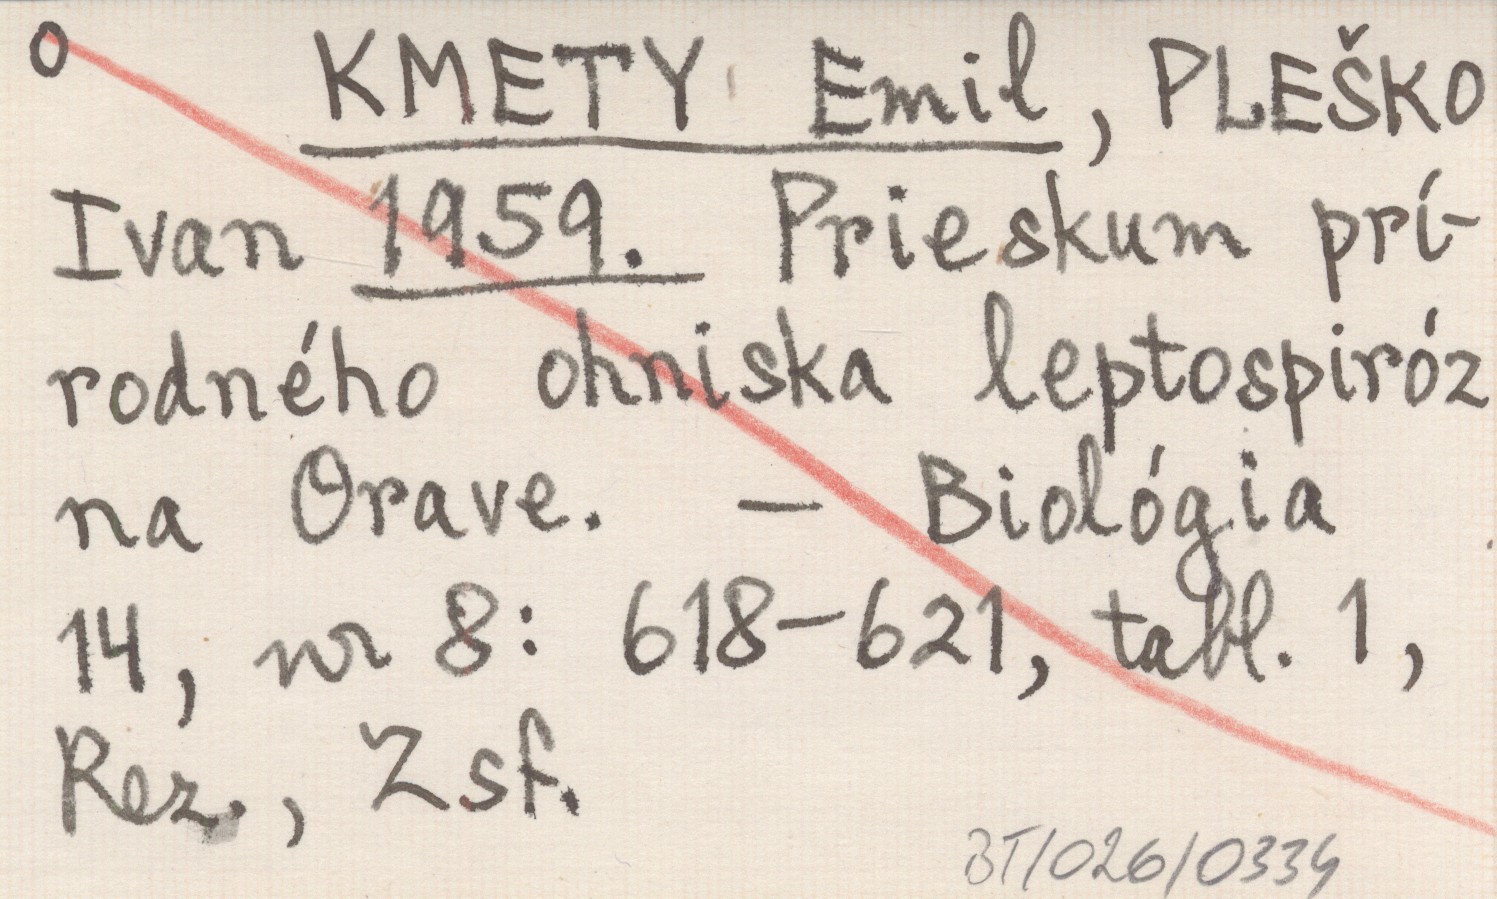 O
KMETY Emil, PLEŠKO
Ivan 1959. Prieskum prí-
rodného ohniska leptospiróz
na Orave. — Biológia
14, nr 8: 618–621, tabl. 1,
Rez., Zsf.
BT/026/0334